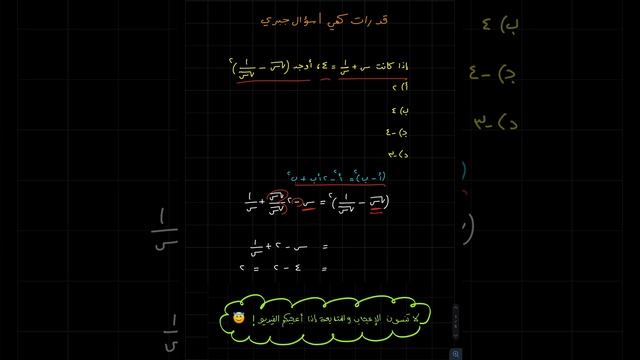 قدرات كمي | سؤال جبري
إذا كانت س + ١/س = ٤، أوجد (√س - ١/√س)^٢
أ) ٢
ب) ٤
ج) -٤
د) -٣
(أ - ب)^٢ = أ^٢ - ٢أب + ب^٢
(√س - ١/√س)^٢ = س - ٢ √س/√س + ١/س
= س - ٢ + ١/س
= ٤ - ٢ = ٢
لا تنسون الإعجاب والمتابعة إذا أعجبكم الفيديو! 😇
ب) ٤
ج) -٤
د) -٣
١/س
١/س